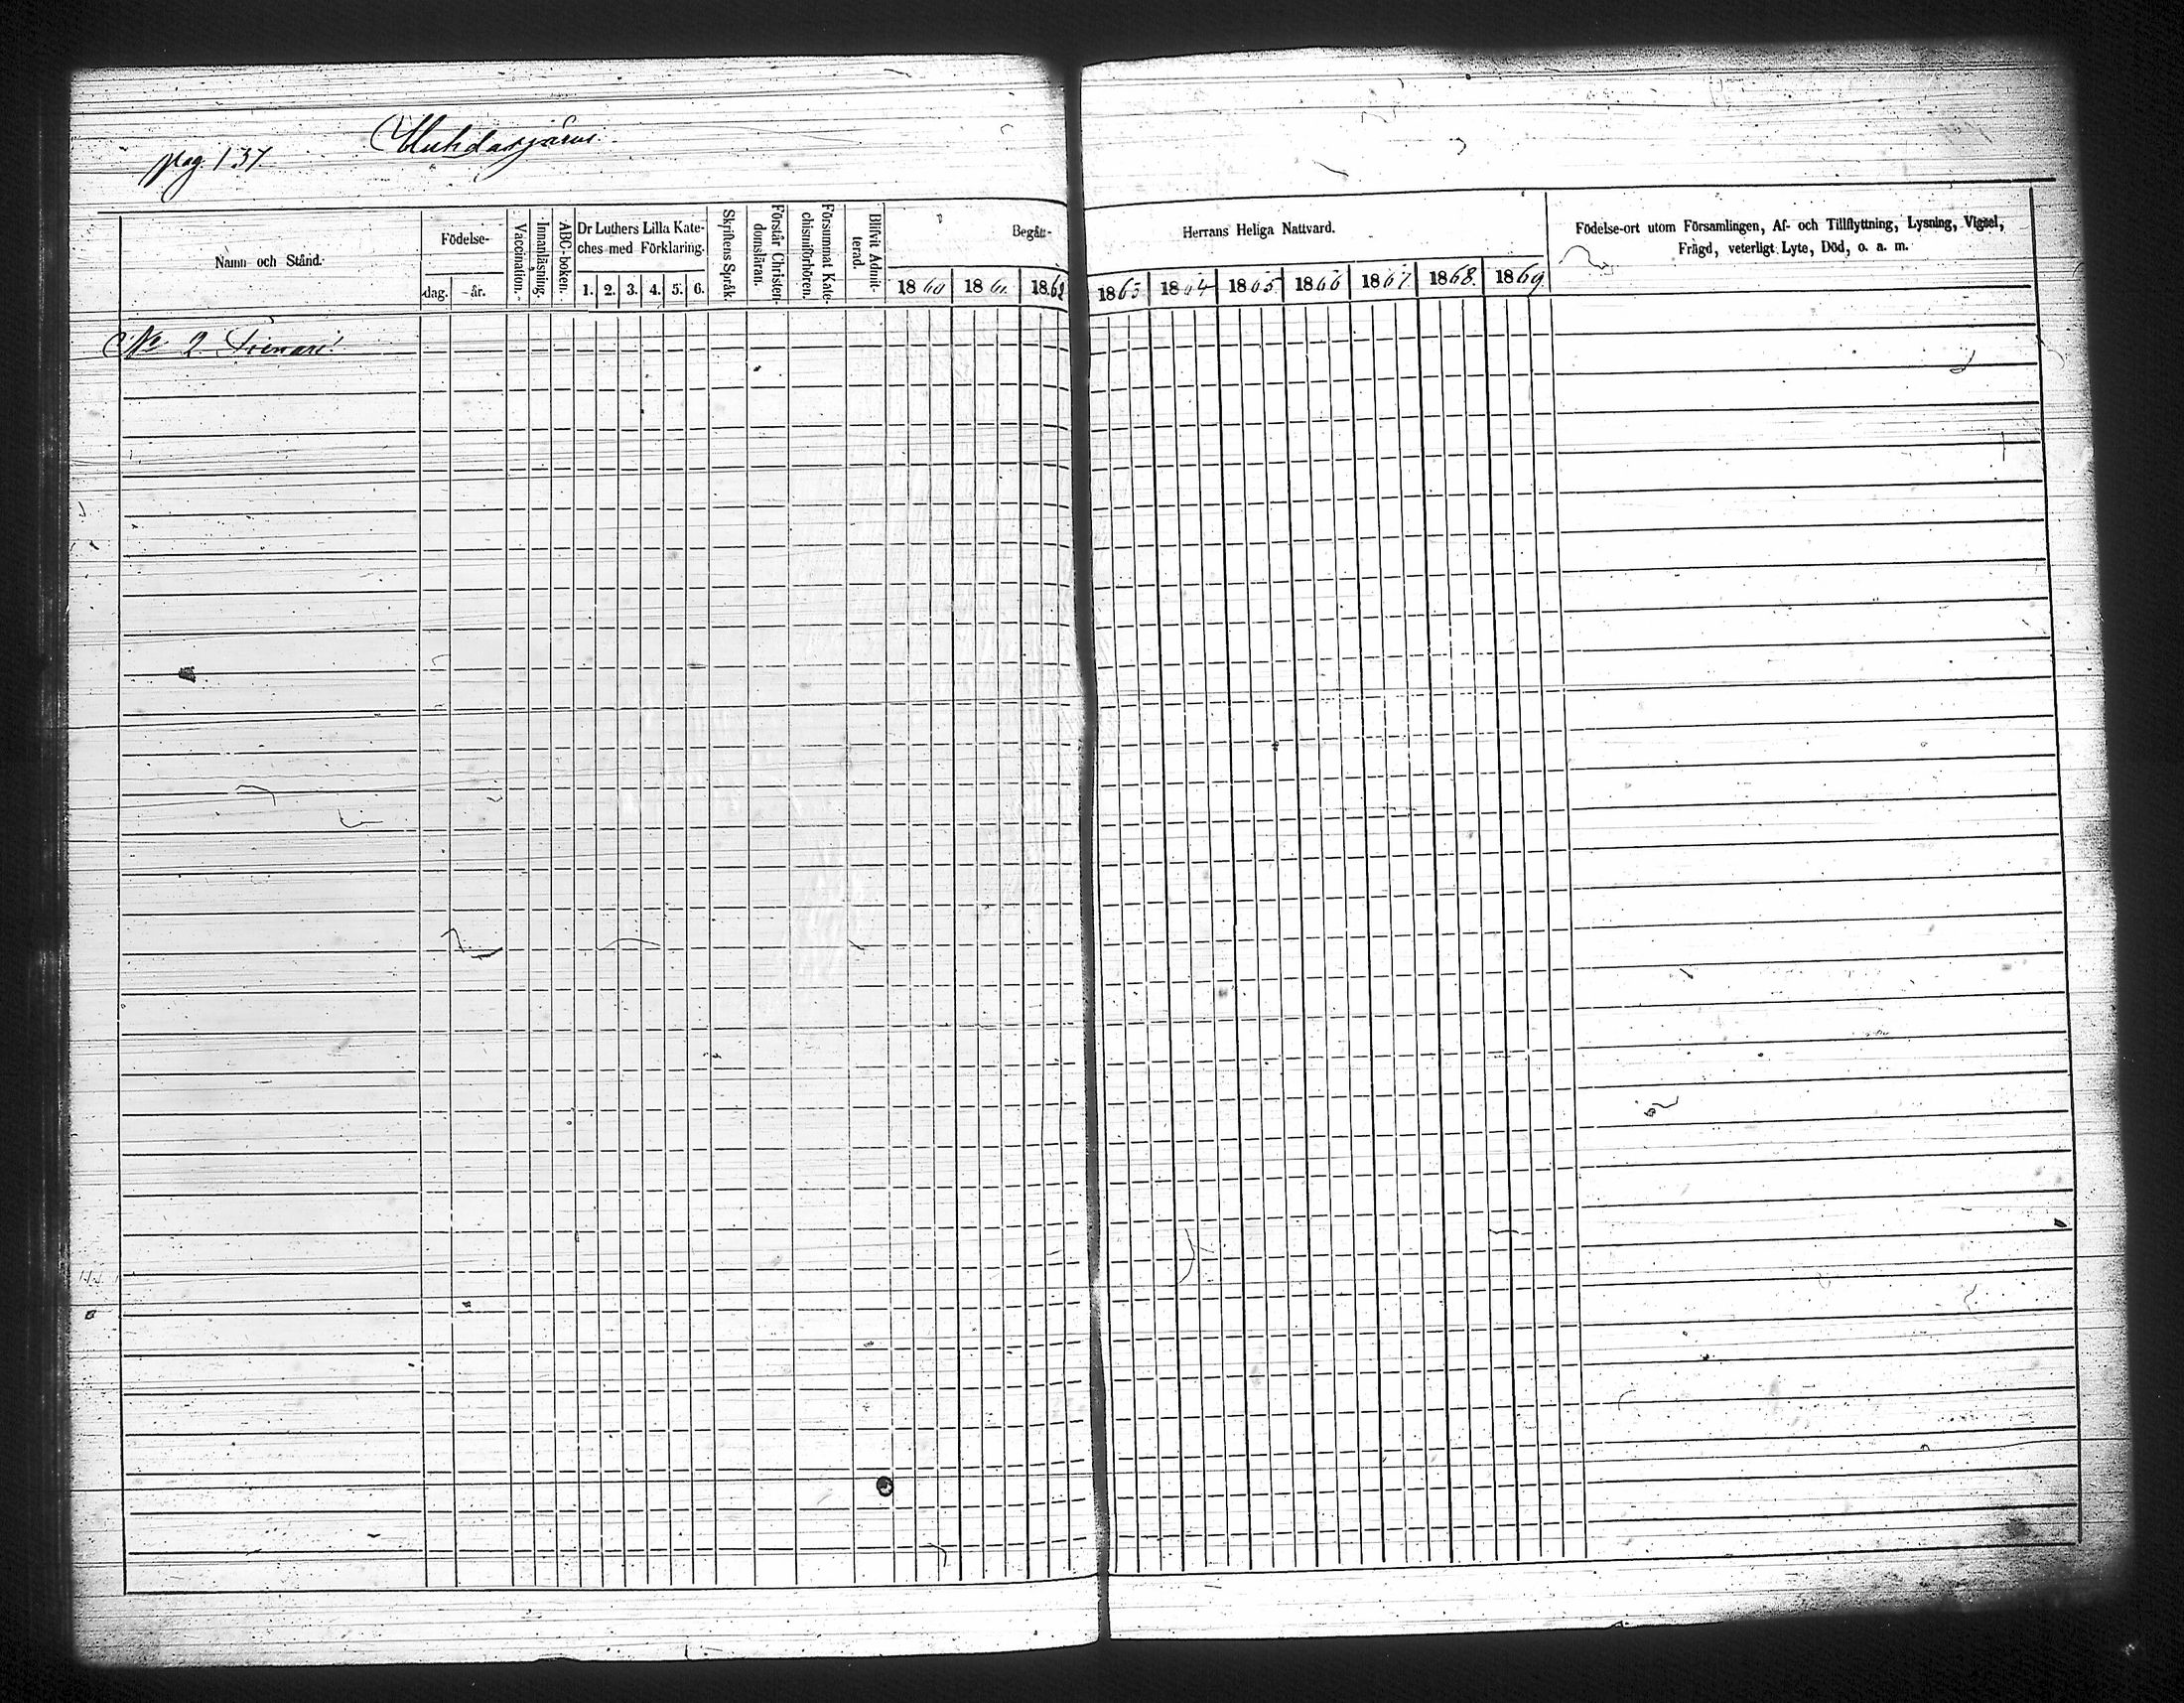 pag 137
Muhdasjärvi.
Namn och Stånd.
Födelse-
dag.
år.
Vaccination.
Innanläsning.
ABC-boken.
Dr Luthers Lilla Kate-
ches med Förklaring.
1. 2. 3. 4. 5. 6.
Skriftens Språk.
Förstår Christen-
domsläran.
Försummat Kate-
chismiförhören.
Blifvit Admit-
terad.
Begått- Herrans Heliga Nattvard.
1860 1861. 1862 1863 1864 1865 1866 1867 1868. 1869.
Födelse-ort utom Församlingen, Af- och Tillflyttning, Lysning, Vigsel,
Frägd, veterligt Lyte, Död, o. a. m.
No 2